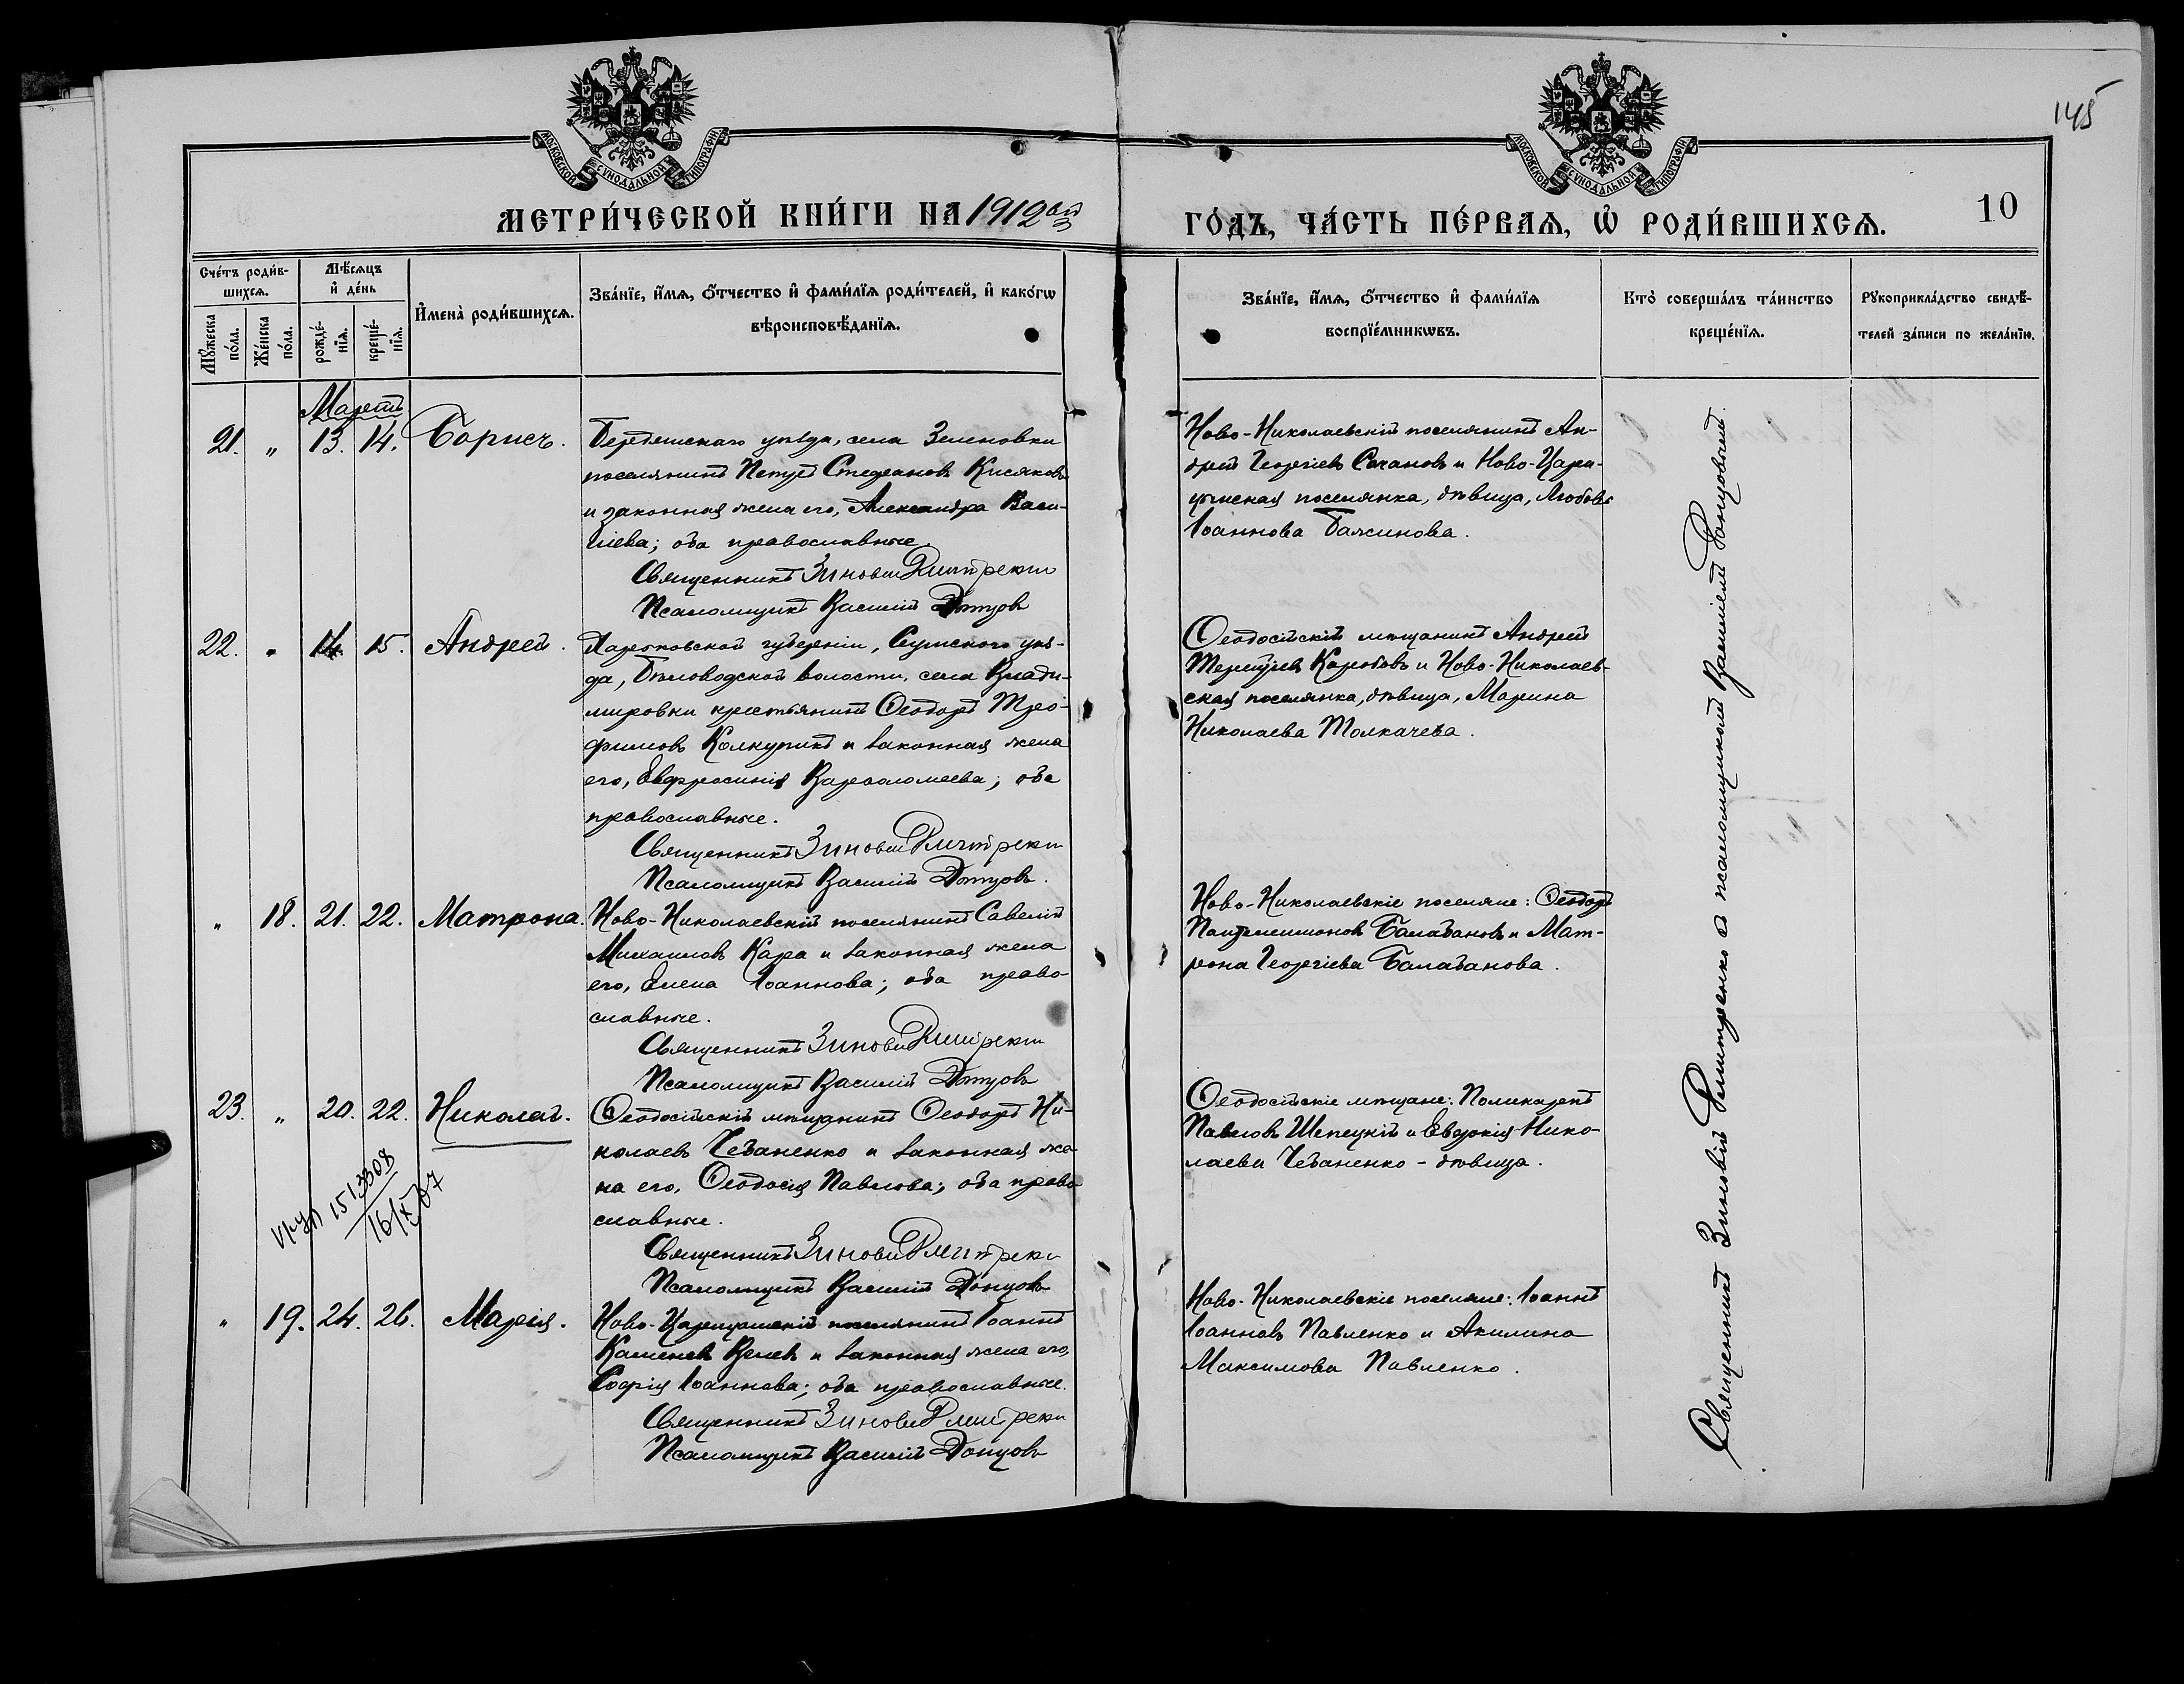 145
МОСКОВСКОЙ СУНОДАЛЬНОЙ ТИПОГРАФІИ
МОСКОВСКОЙ СУНОДАЛЬНОЙ ТИПОГРАФІИ
МЕТРИ́ЧЕСКОЙ КНИ́ГИ НА 1912ый
ГО́ДЪ, ЧА́СТЬ ПЕ́РВАѦ, Ѡ҆ РОДИ́ВШИХСѦ.
10
Сче́тъ роди́в-
шихсѧ.
Мꙋ́жеска по́ла.
Же́нска по́ла.
Мѣ́сѧцъ и҆ де́нь
рожде́-
нїѧ.
креще́-
нїѧ.
И҆мена̀ роди́вшихсѧ.
Зва́нїе, и҆́мѧ, ѻ҆́тчество и҆ фами́лїѧ роди́телей, и҆ како́гѡ
вѣроисповѣ́данїѧ.
Зва́нїе, и҆́мѧ, ѻ҆́тчество и҆ фами́лїѧ
воспрїе́мникѡвъ.
Кто̀ соверша́лъ та́инство
креще́нїѧ.
Рꙋкоприкла́дство свидѣ́-
телей за́писи по жела́нїю.
Мартъ
21. „ 13. 14. Борисъ.
Бердянскаго уѣзда, села Зеленовки
поселянинъ Петръ Стефановъ Кисяковъ
и законная жена его, Александра Васи-
лiева; оба православные.
Священникъ Зиновій Дмитренко
Псаломщикъ Василій Донцовъ
Ново-Николаевскій поселянинъ Ан-
дрей Георгіевъ Саханов и Ново-Цари-
цынская поселянка, дѣвица, Любовь
Іоаннова Бажинова.
22. „ 14. 15. Андрей.
Харьковской губерніи, Сумского уѣз-
да, Бѣловодской волости, села Влади-
мировки крестьянинъ Ѳеодоръ Тро-
фимовъ Колкуникъ и законная жена
его, Евфросинія Варѳоломеева; оба
православные.
Священникъ Зиновій Дмитренко
Псаломщикъ Василій Донцовъ.
Ѳеодосійскій мѣщанинъ Андрей
Терентіевъ Коробовъ и Ново-Николаев-
ская поселянка, дѣвица, Марина
Николаева Толкачева.
„ 18. 21. 22. Матрона.
Ново-Николаевскій поселянинъ Савелій
Михаиловъ Кара и законная жена
его, Елена Іоаннова; оба право-
славные.
Священникъ Зиновій Дмитренко
Псаломщикъ Василій Донцовъ
Ново-Николаевскіе поселяне: Ѳеодоръ
Пантелеимоновъ Балабановъ и Мат-
рона Георгіева Балабанова.
23. „ 20. 22. Николай.
151.3308
16/X 07
Ѳеодосійскій мѣщанинъ Ѳеодоръ Ни-
колаевъ Чебаненко и законная же-
на его, Ѳеодосія Павлова; оба право-
славные.
Священникъ Зиновій Дмитренко
Псаломщикъ Василій Донцовъ
Ѳеодосійскіе мѣщане: Поликарпъ
Павловъ Шепецкій и Евдокія Нико-
лаева Чебаненко - дѣвица.
„ 19. 24. 26. Марія.
Ново-Царицынскій поселянинъ Іоаннъ
Каменевъ Велевъ и законная жена его,
Софія Іоаннова; оба православные.
Священникъ Зиновій Дмитренко
Псаломщикъ Василій Донцовъ
Ново-Николаевскіе поселяне: Іоаннъ
Іоанновъ Павленко и Акилина
Максимова Павленко.
Священникъ Зиновій Дмитренко с псаломщикомъ Василіемъ Донцовымъ.